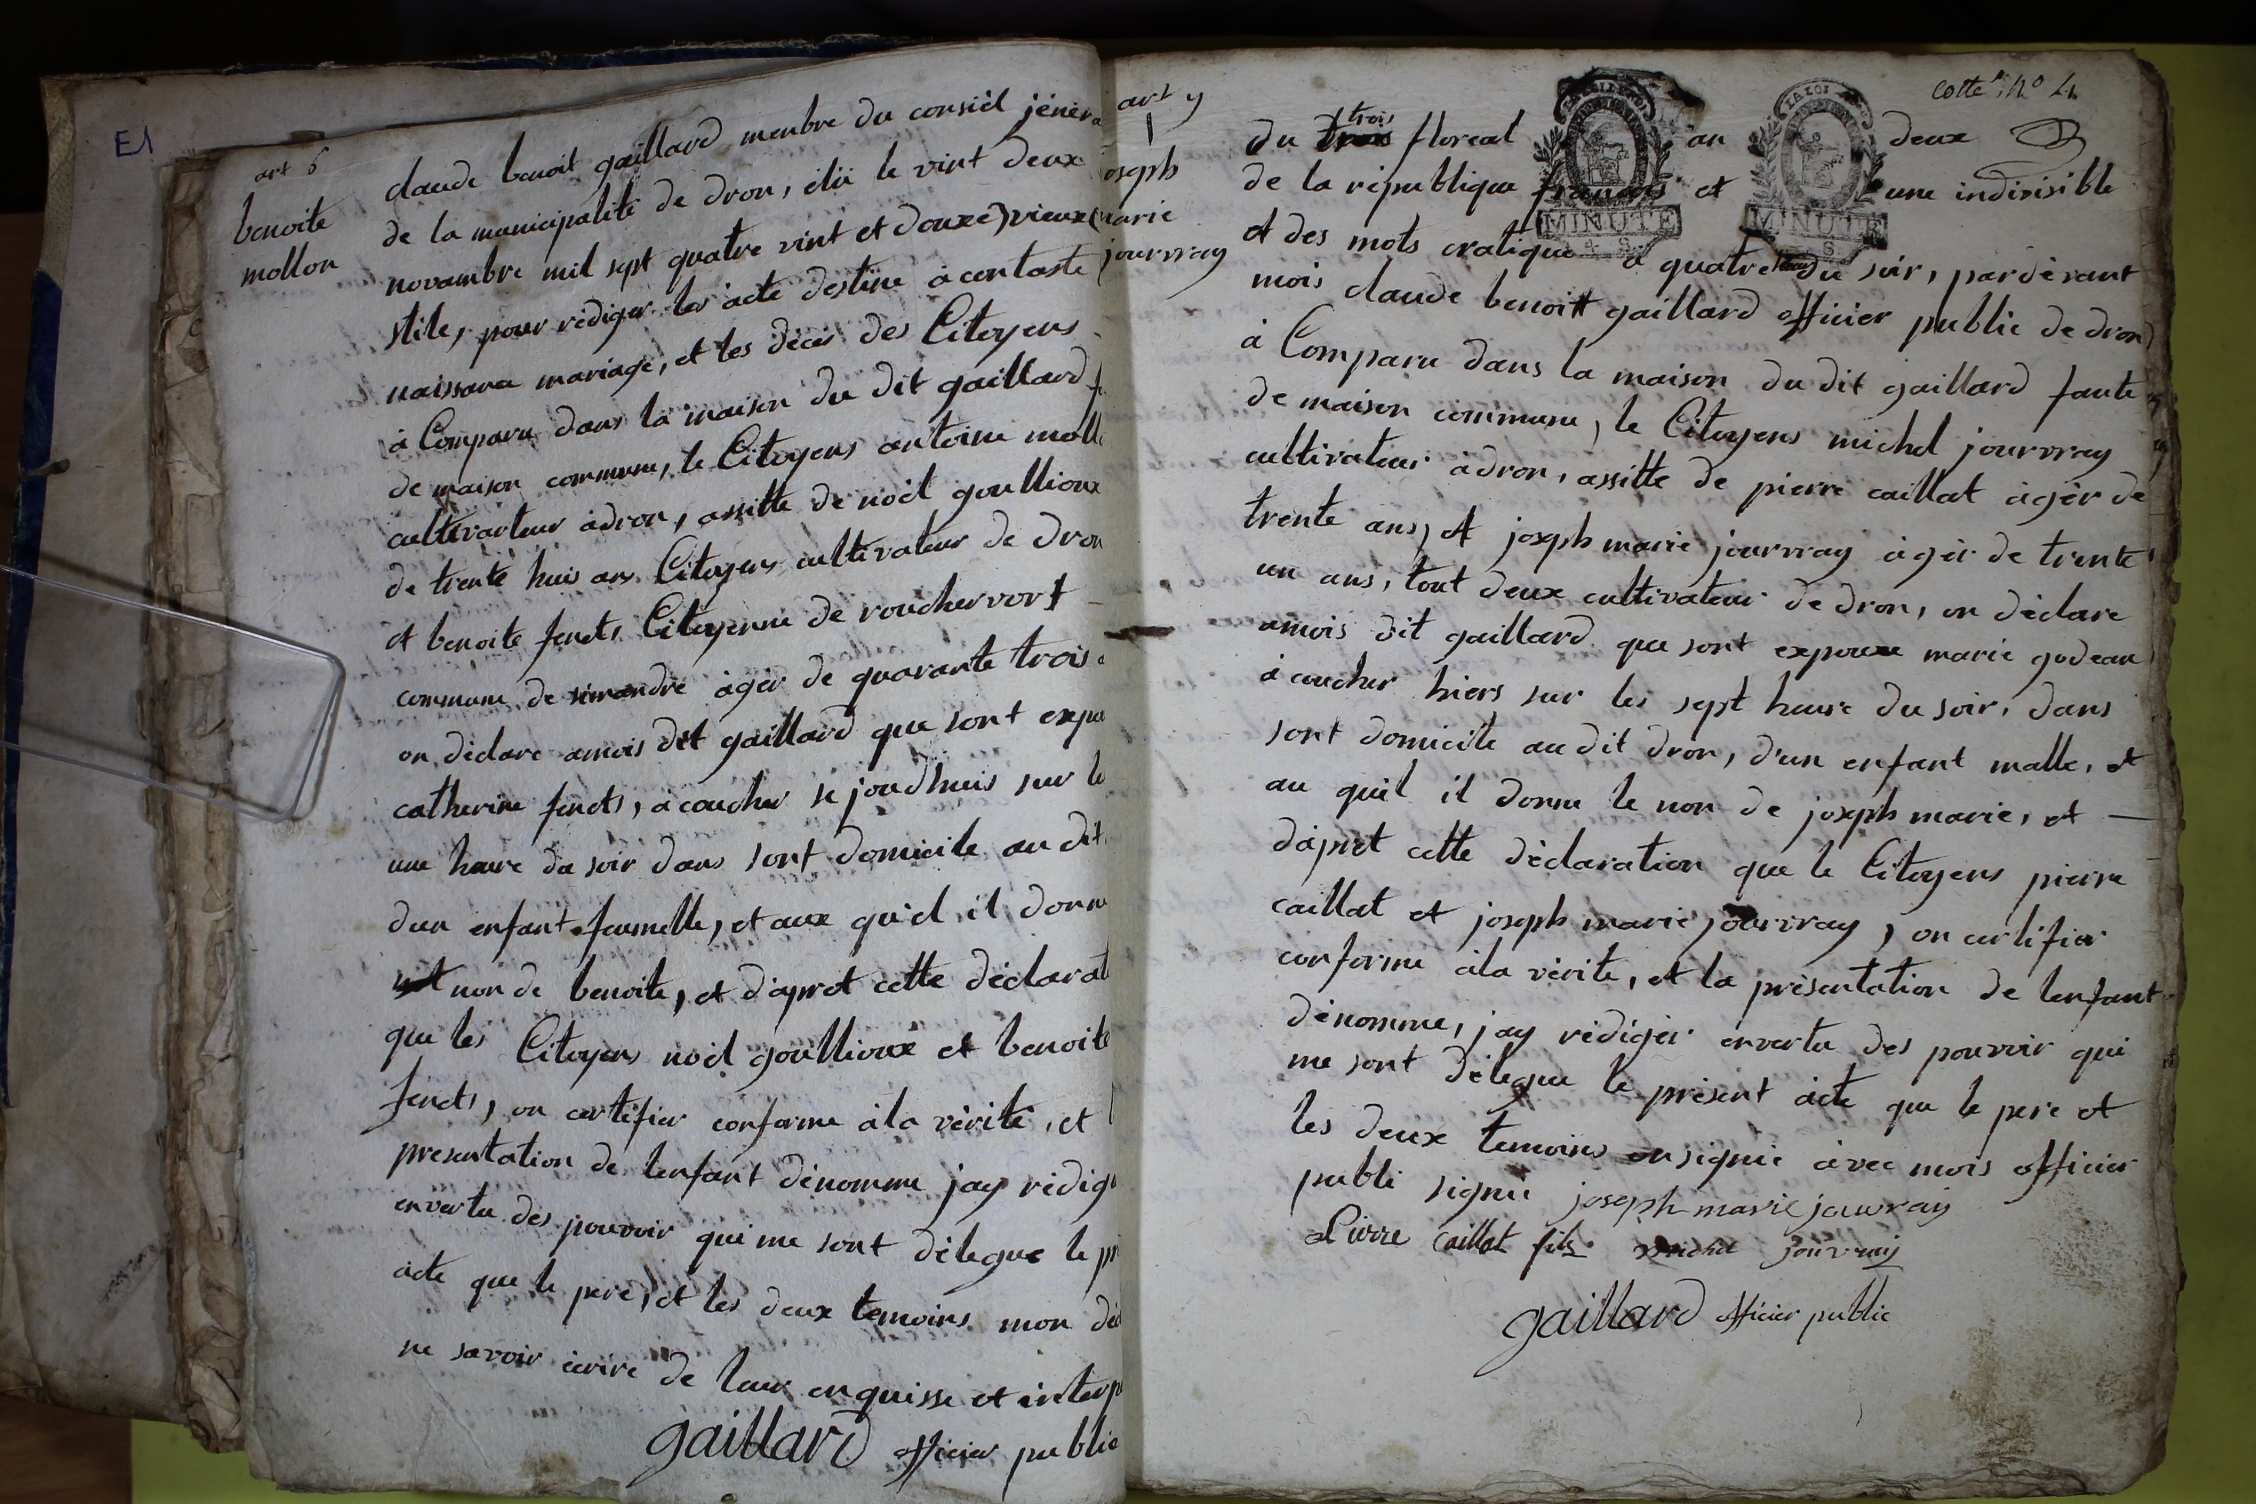 E1
art 6
benoite
mollon
claude benoit gaillard menbre du consiel jénéra
de la municipalité de dron, élü le vint deux
novambre mil sept quatre vint et douxe) vieux
stile, pour rédiger les acte destine a contaste
naissance mariage, et les déces des Citoyens
à Comparu dans la maison du dit gaillard
de maison commune, le Citoyens antoine moll
cultivateur àdron, assitte de noël goullioux
de trente huis ans Citoyens cultivateur de dron
et benoite fends, Citoyenne de rouchervort
commune de simandre àgér de quarante trois
on déclare amois dit gaillard que sont expou
catherine fends, a coucher se joudhuis sur le
une heure du soir dans sont domicile au dit
dun enfant femelle, et aux quel il donne
non de benoite, et dapret cette déclarat
que les Citoyens noël goullioux et benoite
fends, on certifier conforme àla vérité, et
presentation de lenfant dénomme jay rédig
envertu des pouvoir qui me sont délegue le pr
acte que le pere, et les deux temoins mon déc
ne savoir écrire de leur enquisse et interp
gaillard officier public
art 7
oseph
marie
jourvray
Cotte n° 4
trois
du floreal an deux
LA LOI
de la république français et une indivisible
MINUTE MINUTE
et des mots cratique a quatre du soir, pardevant
mois claude benoitt gaillard officier public de dron
à Comparu dans la maison du dit gaillard faute
de maison commune, le Citoyens michel jourvray
cultivateur àdron, assitte de pierre caillat àgér de
trente ans, et joseph marie jourvray àgér de trente
un ans, tout deux cultivateur de dron, on déclare
amois dit gaillard que sont expouxe marie godeau
à coucher hiers sur les sept heure du soir, dans
sont domicile au dit dron, d'un enfant malle, et
au quel il donne le non de joseph marie, et
dapret cette déclaration que le Citoyens pierre
caillat et joseph marie jourvray, on certifier
conforme àla vérite, et la présentation de lenfant
dénomme, jay rédigér envertu des pouvoir qui
me sont délegue le présent acte que le pere et
les deux temoins on signie avec mois officier
publi signé joseph marie jouvray
Pierre Caillat fils michel jouvray
gaillard officier public